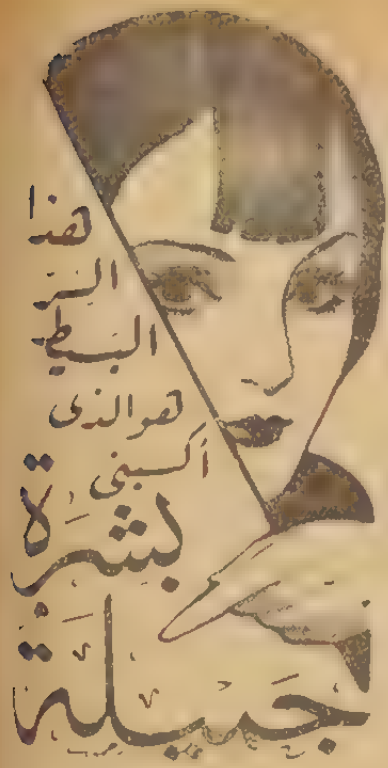 هذا
السر
البسيط
هو الذى
أكسبنى
بشرة
جميلة